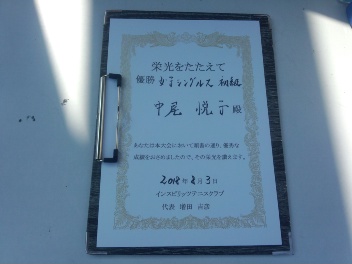 栄光をたたえて
優勝 女子シングルス 初級
中尾 悦子 殿
あなたは本大会において頭書の通り、優秀な
成績をおさめましたので、その栄光を讃えます。
2018年2月3日
インスピリッツテニスクラブ
代表 増田 吉彦